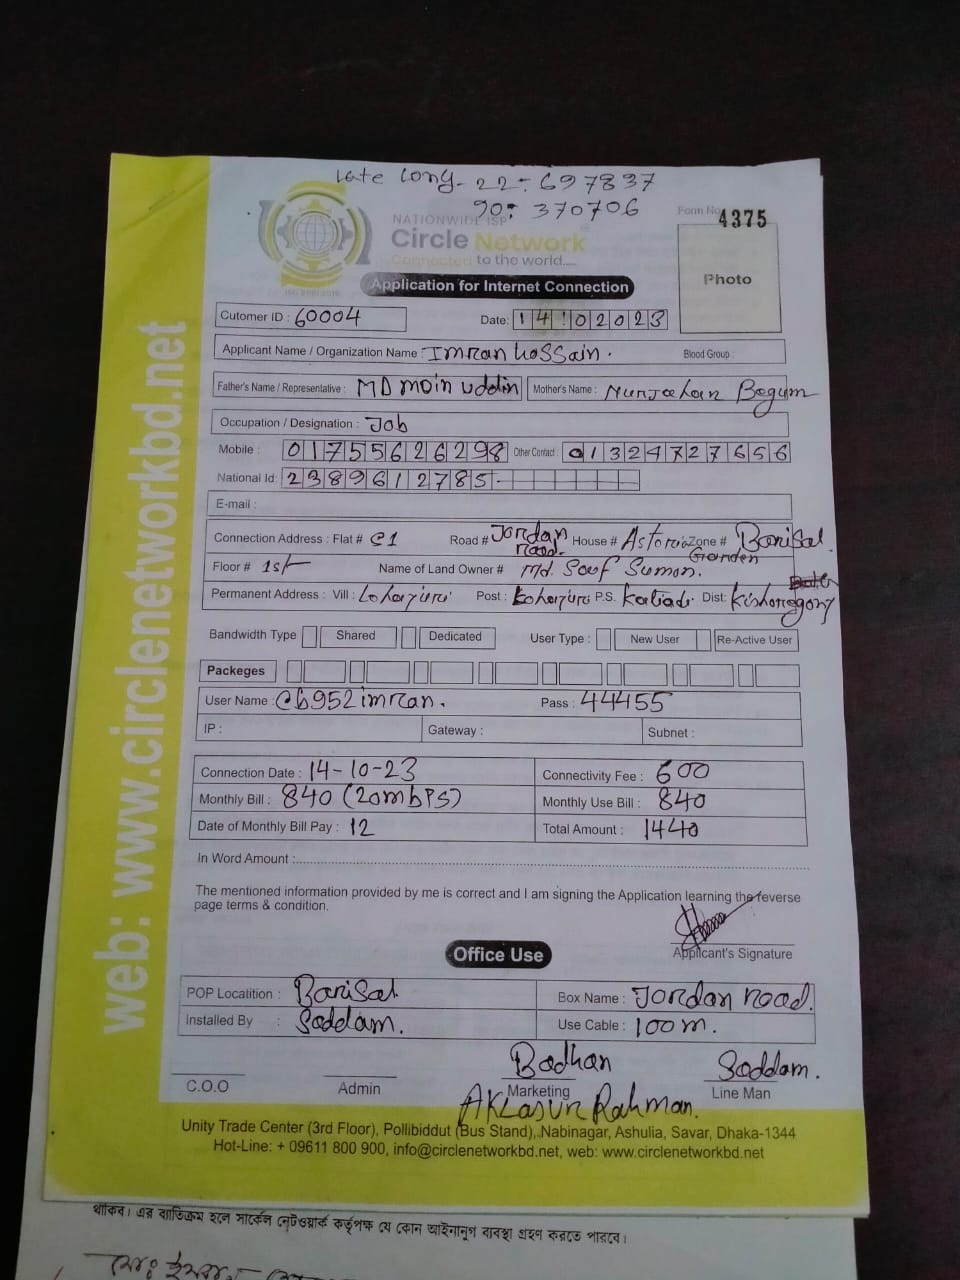 Late Long- 22: 697837
90: 370706
NATIONWIDE ISP
Circle Network
Connected to the world....
Form No 4375
Photo
Application for Internet Connection
Cutomer ID : 60004 Date: 14 02023
Applicant Name / Organization Name : Imran Hossain. Blood Group :
Father's Name / Representative : MD Moin Uddin Mother's Name : Nurjahan Begum
Occupation / Designation : Job
Mobile : 01755626298 Other Contact : 01324727656
National Id: 2389612785
E-mail :
Connection Address : Flat # C1 Road # Jordan Road. House # Astoria Garden Zone # Barisal.
Floor # 1st Name of Land Owner # Md. Suman.
Permanent Address : Vill : Lohajuri Post : Lohajuri P.S. Katiadi Dist: Kishoregonj
Bandwidth Type Shared Dedicated User Type : New User Re-Active User
Packeges
User Name : cb952imran. Pass : 44455
IP : Gateway : Subnet :
Connection Date : 14-10-23 Connectivity Fee : 600
Monthly Bill : 840 (20mbps) Monthly Use Bill : 840
Date of Monthly Bill Pay : 12 Total Amount : 1440
In Word Amount :
The mentioned information provided by me is correct and I am signing the Application learning the reverse
page terms & condition.
Applicant's Signature
Office Use
POP Locatition : Barisal Box Name : Jordan road.
Installed By : Saddam. Use Cable : 100 m.
Badhan Saddam.
C.O.O Admin Marketing Line Man
Aklasur Rahman.
Unity Trade Center (3rd Floor), Pollibiddut (Bus Stand), Nabinagar, Ashulia, Savar, Dhaka-1344
Hot-Line: + 09611 800 900, info@circlenetworkbd.net, web: www.circlenetworkbd.net
web: www.circlenetworkbd.net
থাকিব। এর ব্যতিক্রম হলে সার্কেল নেটওয়ার্ক কর্তৃপক্ষ যে কোন আইনানুগ ব্যবস্থা গ্রহণ করতে পারবে।